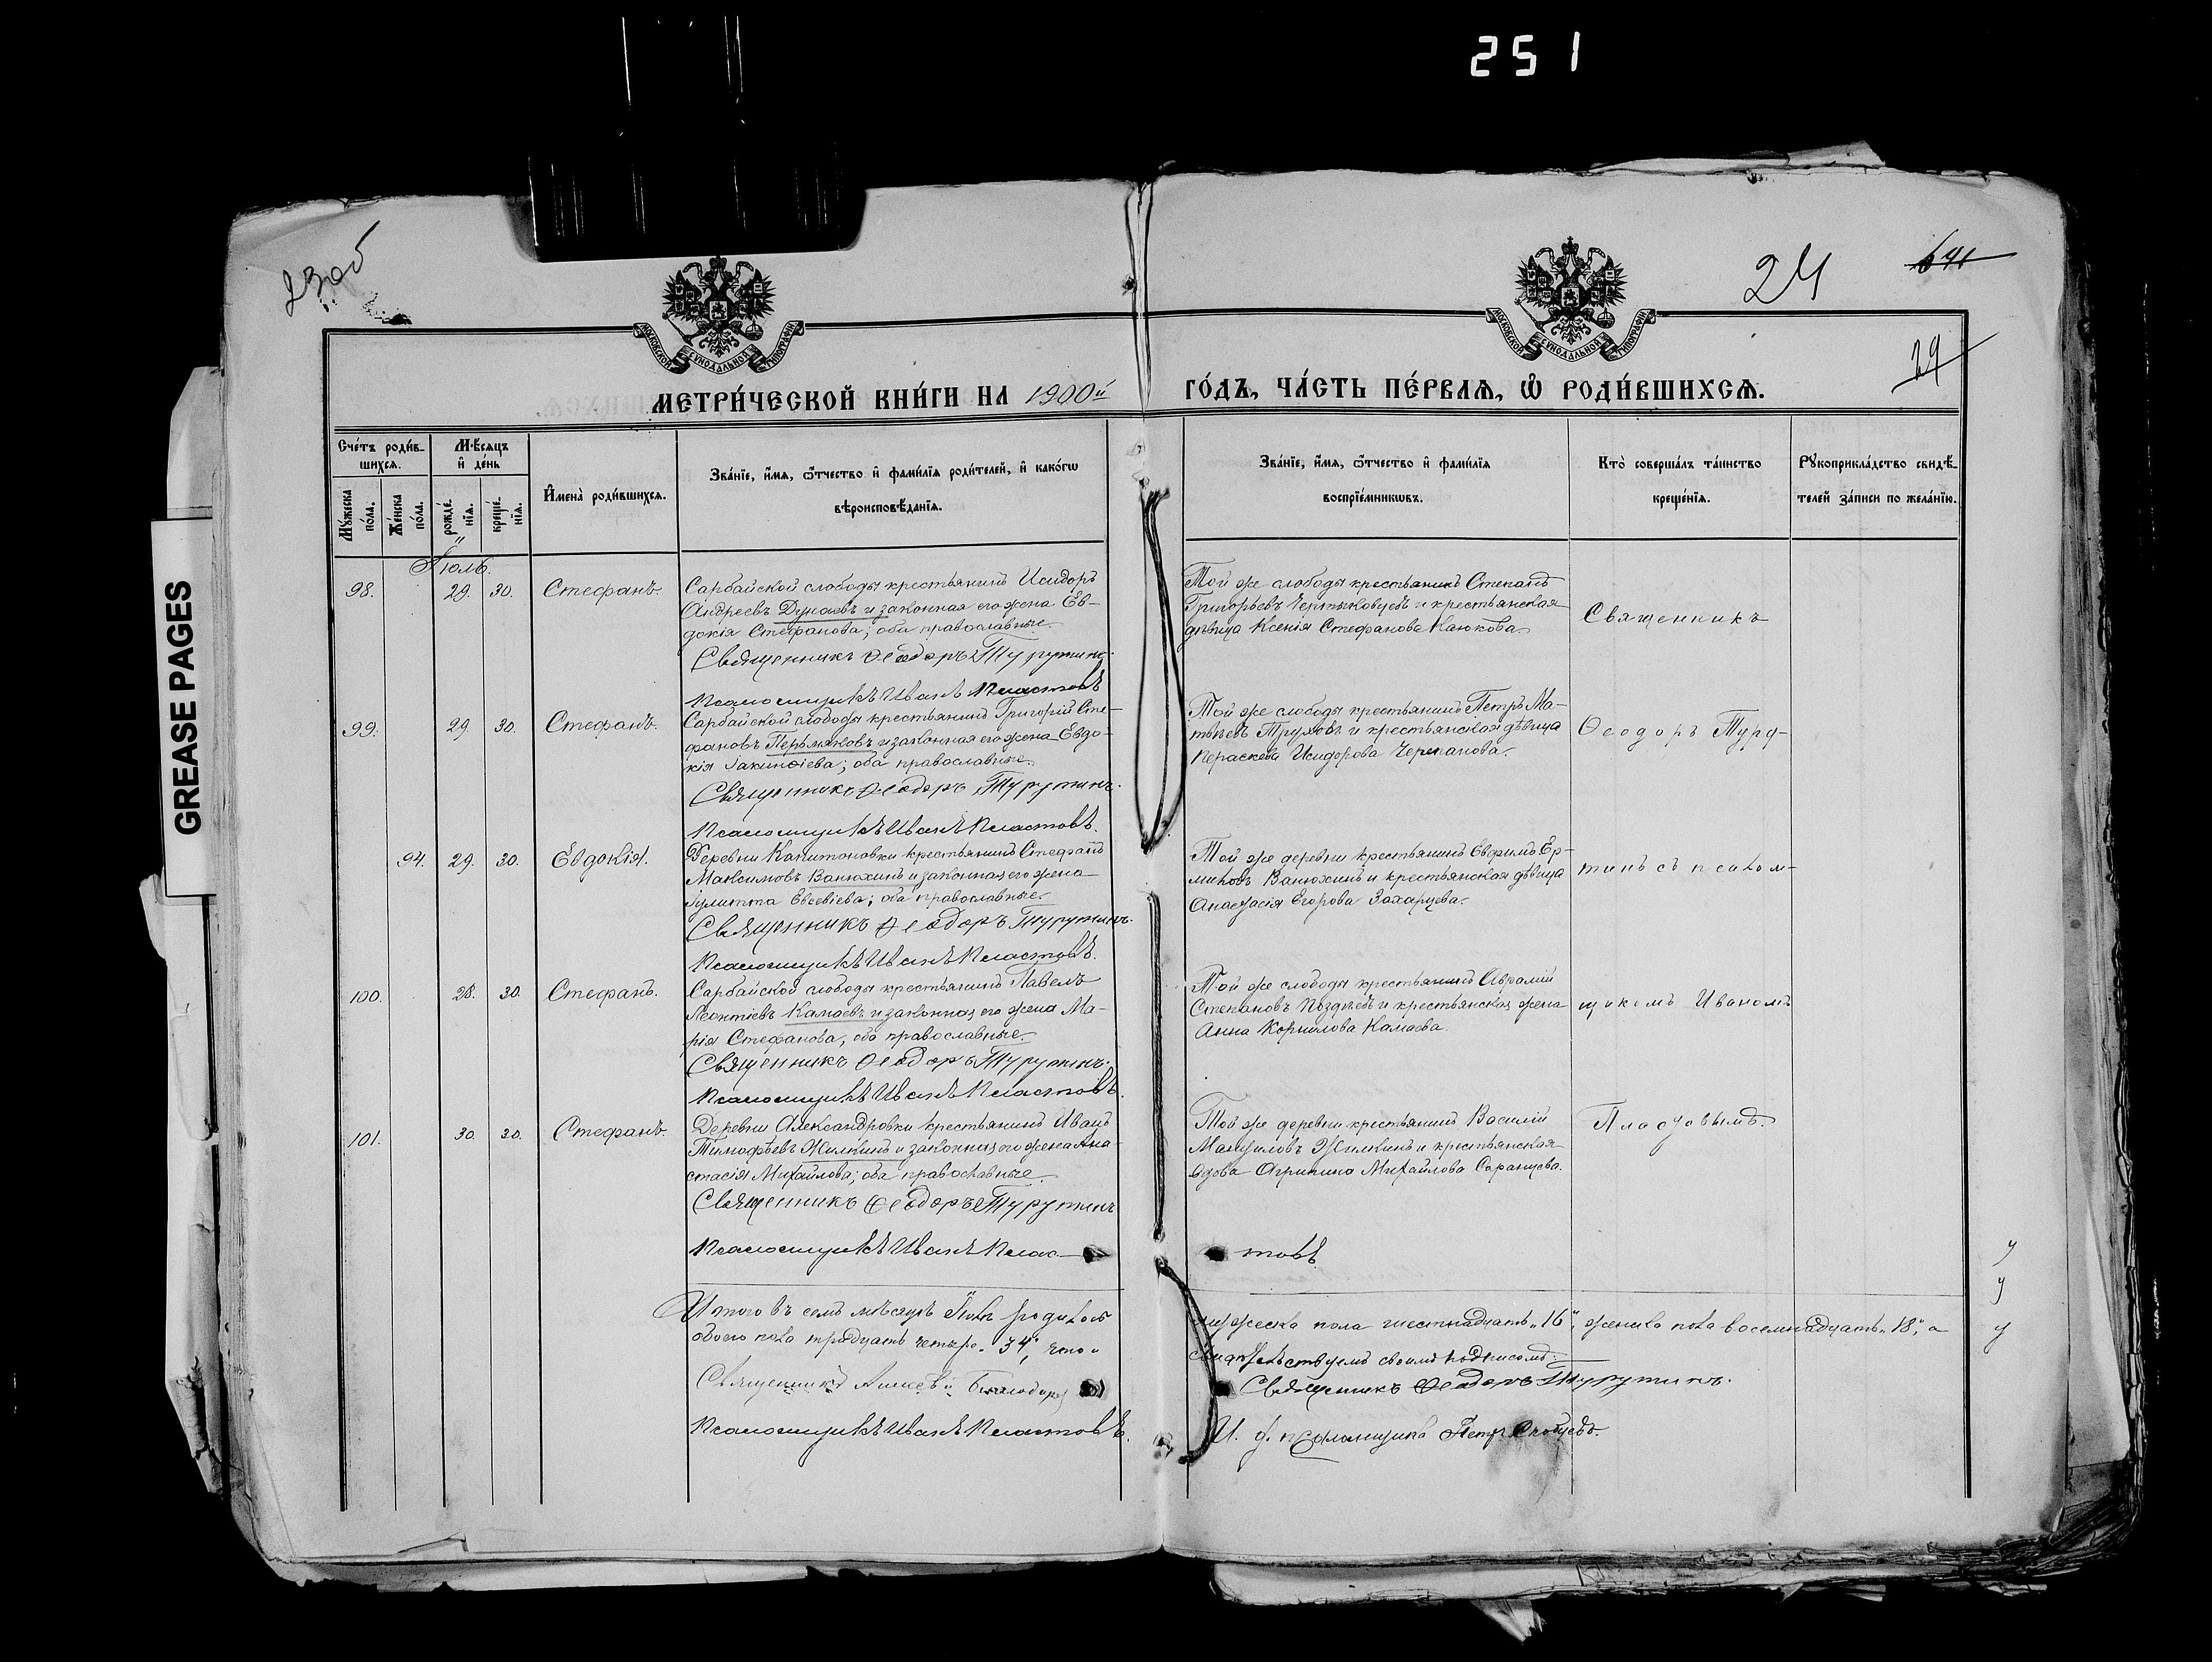 251
GREASE PAGES
23об
24
641
29
МОСКОВСКОЙ СѴНОДАЛЬНОЙ ТИПОГРАФІИ
МОСКОВСКОЙ СѴНОДАЛЬНОЙ ТИПОГРАФІИ
МЕТРИ́ЧЕСКОЙ КНИ́ГИ НА 1900й ГО́ДЪ, ЧА́СТЬ ПЕ́РВАѦ, Ѽ РОДИ́ВШИХСѦ.
Сче́тъ роди́в-
шихсѧ.
Мѣ́сяцъ
и҆ де́нь
Мꙋ́жеска по́ла.
Же́нска по́ла.
рожде́нїѧ.
креще́нїѧ.
И҆мена̀ роди́вшихсѧ.
Зва́нїе, и҆́мѧ, ѻ҆́тчество и҆ фами́лїѧ роди́телей, и҆ како́гѡ
вѣроисповѣ́данїѧ.
Зва́нїе, и҆́мѧ, ѻ҆́тчество и҆ фами́лїѧ
воспрїе́мникѡвъ.
Кто̀ соверша́лъ та́инство
креще́нїѧ.
Рꙋкоприкла́дство свидѣ́-
телей за́писи по жела́нїю.
Іюль.
98. 29. 30. Стефанъ.
Сарбайской слободы крестьянинъ Исидоръ
Андреевъ Дунаевъ и законная его жена Ев-
докія Стефанова; оба православные.
Священникъ Ѳеодоръ Турутинъ.
Псаломщикъ Иванъ Пластовъ
Той же слободы крестьянинъ Степанъ
Григорьевъ и крестьянская
дѣвица Ксенія Стефанова
Священникъ
99. 29 30. Стефанъ.
Сарбайской слободы крестьянинъ Григорій Сте-
фановъ Пермяковъ и законная его жена Евдо-
кія Іакинѳіева; оба православные.
Священникъ Ѳеодоръ Турутинъ.
Псаломщикъ Иванъ Пластовъ.
Той же слободы крестьянинъ Петръ Ма-
твѣевъ и крестьянская дѣвица
Параскева Исидорова Черепанова.
Ѳеодоръ Туру-
94. 29. 30. Евдокія.
Деревни Капитоновки крестьянинъ Стефанъ
Максимовъ Ванюхинъ и законная его жена
Іулитта Евсевіева; оба православные.
Священникъ Ѳеодоръ Турутинъ.
Псаломщикъ Иванъ Пластовъ.
Той же деревни крестьянинъ Евфимъ Ер-
миловъ Ванюхинъ и крестьянская дѣвица
Анастасія Егорова Захарцева.
тинъ съ псалом-
100. 28. 30. Стефанъ.
Сарбайской слободы крестьянинъ Павелъ
Леонтіевъ Камаевъ и законная его жена Ма-
рія Стефанова, оба православные.
Священникъ Ѳеодоръ Турутинъ.
Псаломщикъ Иванъ Пластовъ.
Той же слободы крестьянинъ Авраамій
Степановъ Поздѣевъ и крестьянская жена
Анна Корнилова Камаева.
щикомъ Иваномъ
101. 30. 30. Стефанъ.
Деревни Александровки крестьянинъ Иванъ
Тимофѣевъ Жилкинъ и законная его жена Ана-
стасія Михайлова; оба православные.
Священникъ Ѳеодоръ Турутинъ
Псаломщикъ Иванъ Плас- товъ
Той же деревни крестьянинъ Василій
Мануиловъ Жилкинъ и крестьянская
вдова Агрипина Михайлова Саранцева.
Пластовымъ.
Итого въ семъ мѣсяцѣ Іюлѣ родилось мужеска пола шестнадцать „16", женска пола восемнадцать „18", а
обоего пола тридцать четыре „34", что свидѣтельствуемъ своимъ подписомъ:
Священникъ Алексѣй
Священникъ Ѳеодоръ Турутинъ.
Псаломщикъ Иванъ Пластовъ.
И. д. псаломщика Петръ